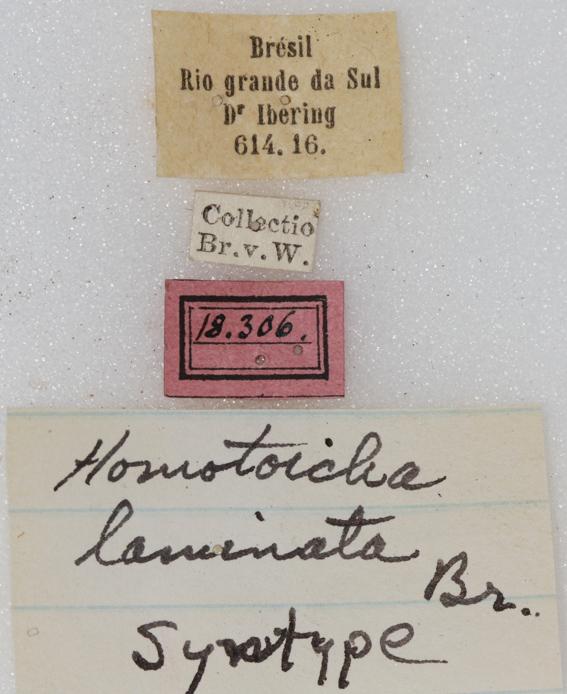 Brésil
Rio grande da Sul
Dʳ Ibering
614. 16.
Collectio
Br. v. W.
18.306.
Homotoicha
laminata
Br..
Syntype